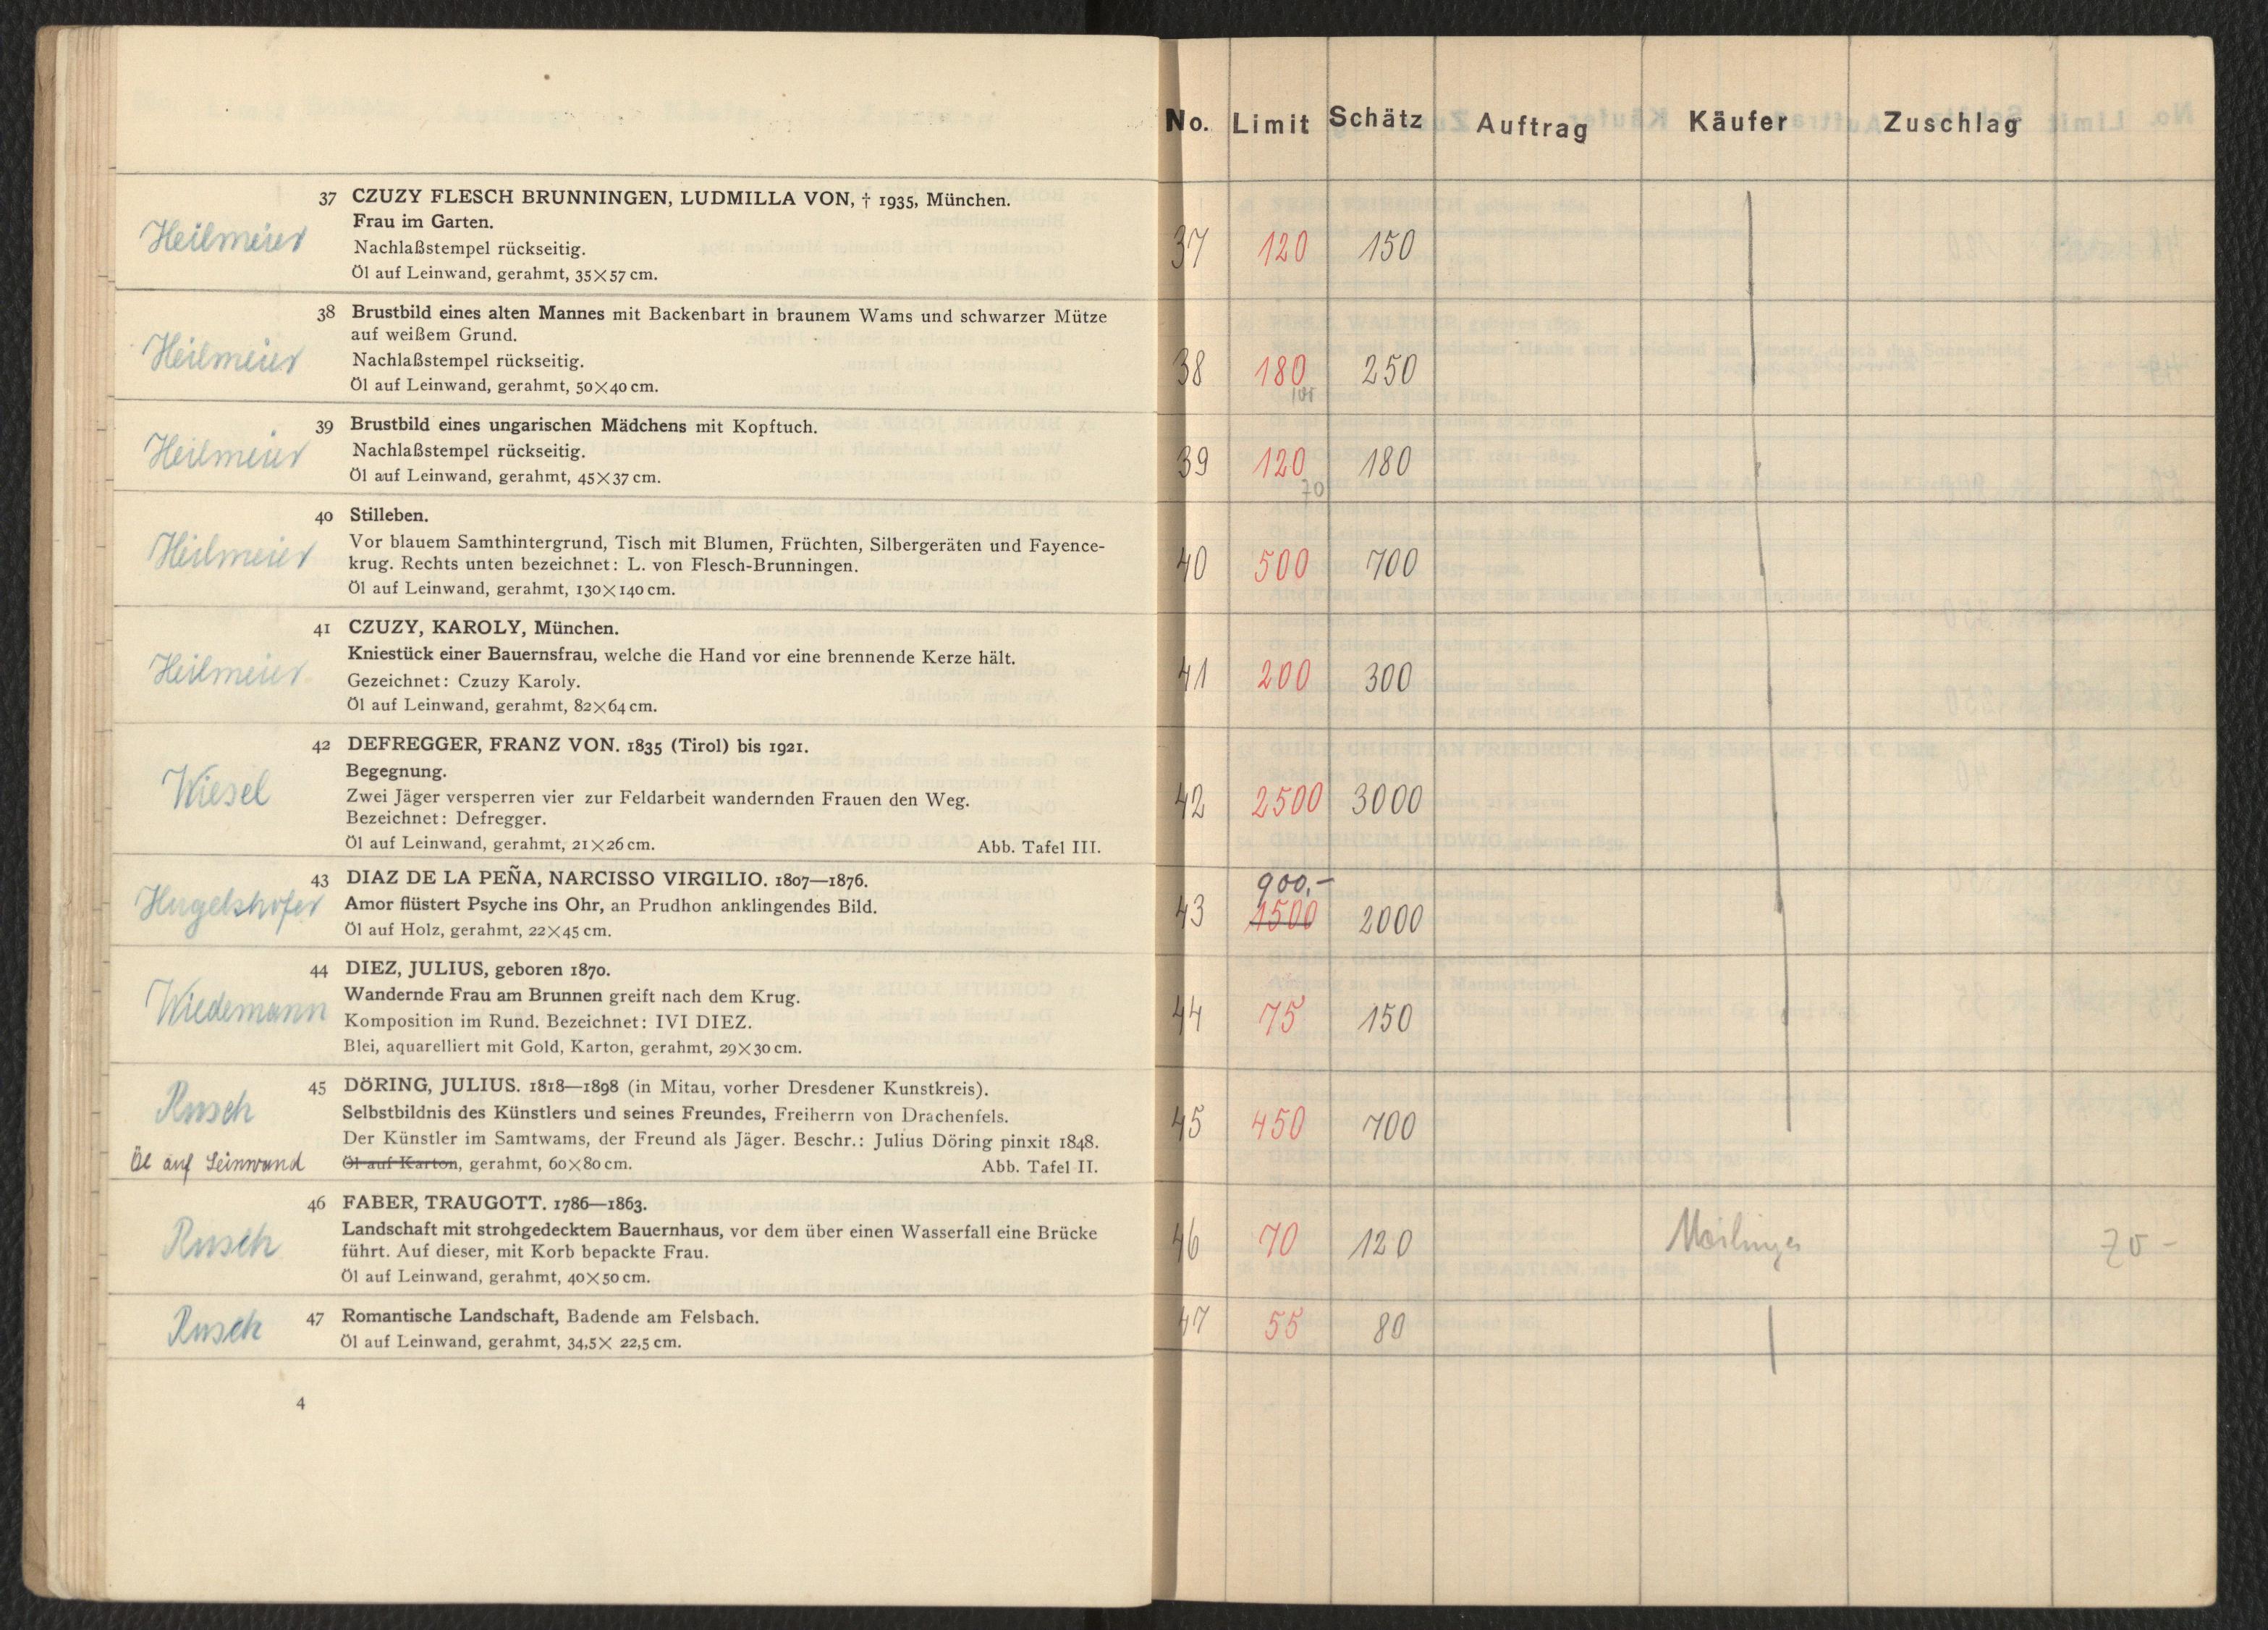 37 CZUZY FLESCH BRUNNINGEN, LUDMILLA VON, † 1935, München.
Frau im Garten.
Heilmeier
Nachlaßstempel rückseitig.
Öl auf Leinwand, gerahmt, 35×57 cm.
38 Brustbild eines alten Mannes mit Backenbart in braunem Wams und schwarzer Mütze
auf weißem Grund.
Heilmeier
Nachlaßstempel rückseitig.
Öl auf Leinwand, gerahmt, 50×40 cm.
39 Brustbild eines ungarischen Mädchens mit Kopftuch.
Heilmeier
Nachlaßstempel rückseitig.
Öl auf Leinwand, gerahmt, 45×37 cm.
40 Stilleben.
Heilmeier
Vor blauem Samthintergrund, Tisch mit Blumen, Früchten, Silbergeräten und Fayence-
krug. Rechts unten bezeichnet: L. von Flesch-Brunningen.
Öl auf Leinwand, gerahmt, 130×140 cm.
41 CZUZY, KAROLY, München.
Kniestück einer Bauernsfrau, welche die Hand vor eine brennende Kerze hält.
Heilmeier
Gezeichnet: Czuzy Karoly.
Öl auf Leinwand, gerahmt, 82×64 cm.
42 DEFREGGER, FRANZ VON. 1835 (Tirol) bis 1921.
Begegnung.
Wiesel
Zwei Jäger versperren vier zur Feldarbeit wandernden Frauen den Weg.
Bezeichnet: Defregger.
Öl auf Leinwand, gerahmt, 21×26 cm. Abb. Tafel III.
43 DIAZ DE LA PEÑA, NARCISSO VIRGILIO. 1807—1876.
Hugelshofer
Amor flüstert Psyche ins Ohr, an Prudhon anklingendes Bild.
Öl auf Holz, gerahmt, 22×45 cm.
44 DIEZ, JULIUS, geboren 1870.
Wandernde Frau am Brunnen greift nach dem Krug.
Wiedemann
Komposition im Rund. Bezeichnet: IVI DIEZ.
Blei, aquarelliert mit Gold, Karton, gerahmt, 29×30 cm.
45 DÖRING, JULIUS. 1818—1898 (in Mitau, vorher Dresdener Kunstkreis).
Rusch
Selbstbildnis des Künstlers und seines Freundes, Freiherrn von Drachenfels.
Der Künstler im Samtwams, der Freund als Jäger. Beschr.: Julius Döring pinxit 1848.
Öl auf Leinwand
Öl auf Karton, gerahmt, 60×80 cm. Abb. Tafel II.
46 FABER, TRAUGOTT. 1786—1863.
Landschaft mit strohgedecktem Bauernhaus, vor dem über einen Wasserfall eine Brücke
Rusch
führt. Auf dieser, mit Korb bepackte Frau.
Öl auf Leinwand, gerahmt, 40×50 cm.
47 Romantische Landschaft, Badende am Felsbach.
Rusch
Öl auf Leinwand, gerahmt, 34,5× 22,5 cm.
4
No. Limit Schätz Auftrag Käufer Zuschlag
37 120 150
38 180 250
39 120 180
70
40 500 700
41 200 300
42 2500 3000
900.-
43 1500 2000
44 75 150
45 450 700
46 70 120 70 -
47 55 80